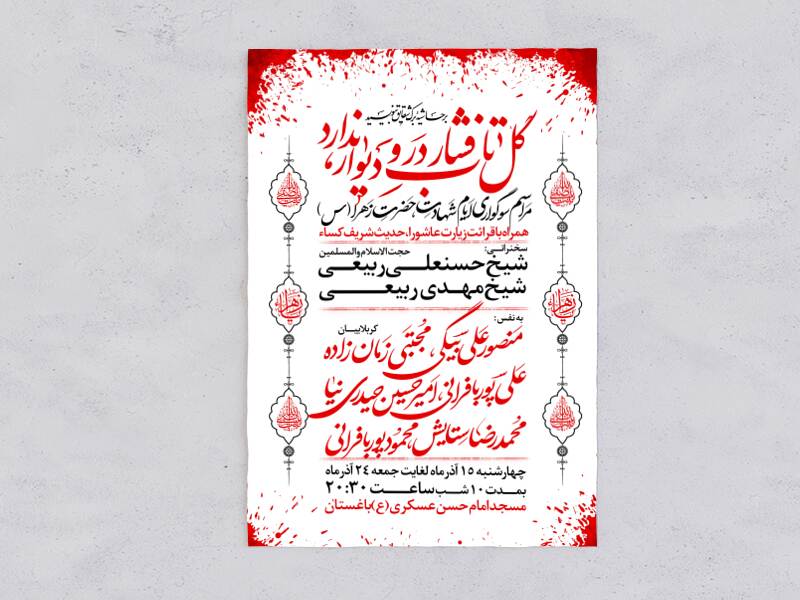 بر حاشیه برگ شقایق بنویسید
گل تاب فشار در و دیوار ندارد
مراسم سوگواری ایام شهادت حضرت زهرا (س)
همراه با قرائت زیارت عاشورا، حدیث شریف کساء
سخنرانی: حجت الاسلام والمسلمین
شیخ حسنعلی ربیعی
شیخ مهدی ربیعی
به نفس: کربلاییان
منصور علی بیگی، مجتبی زمان زاده
علی پوربافرانی، امیرحسین حیدری نیا
محمدرضا ستایش، محمود پوربافرانی
چهارشنبه ۱۵ آذرماه لغایت جمعه ۲۴ آذرماه
بمدت ۱۰ شب ساعت ۲۰:۳۰
مسجد امام حسن عسکری (ع) باغستان